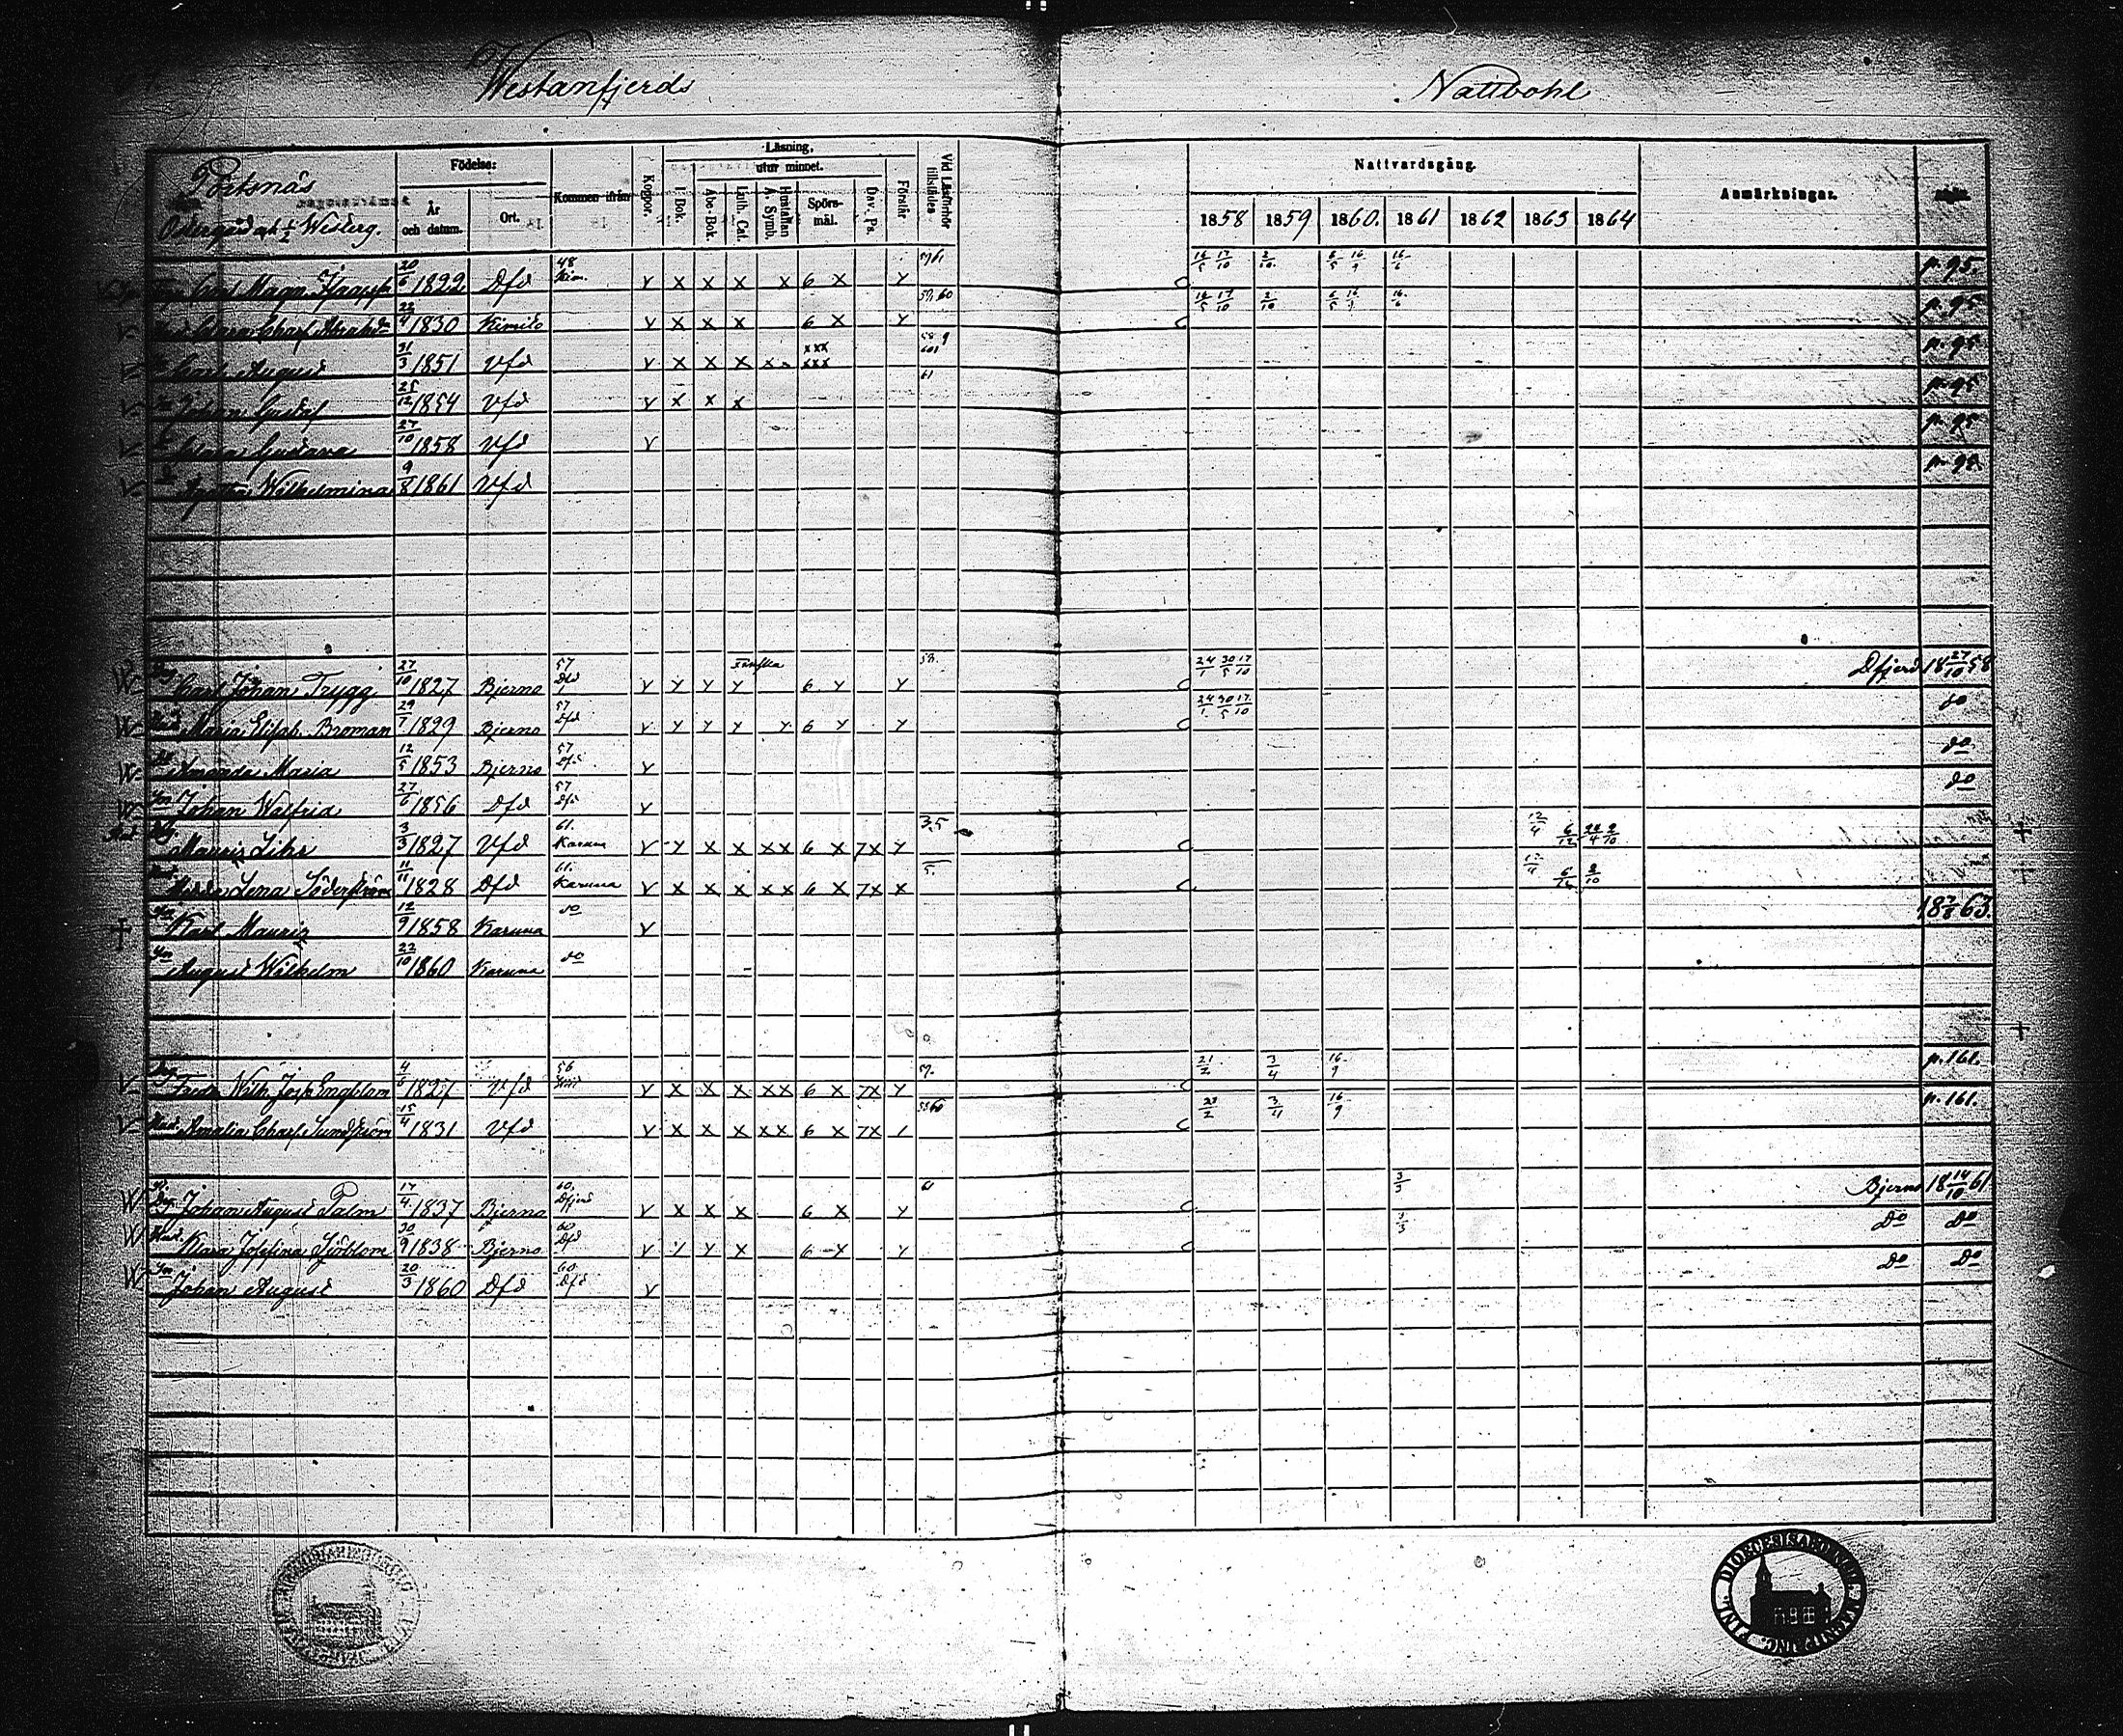 Westanfjerds Nattbohl
Pörtsnäs
Östergård och 1/2 Westerg.
Födelse: År och datum. Ort. Kommen ifrån Koppor. Läsning, I Bok. utur minnet. Abc-Bok. Luth. Cat. Hustaflan A. Symb. Spörs-mål. Dav. Ps. Förstår Vid Läsförhör tillstädes
Nattvardsgång. 1858 1859 1860. 1861 1862 1863 1864 Anmärkningar.
Carl Magn. 20/6 1822 Dfd 48 Kim. Y X X X X 6 X Y 16/5 17/10 2/10 6/5 16/9 16/6 p. 95.
Clara Charl. 22/4 1830 Kimito Y X X X 6 X Y 16/5 17/10 2/10 6/5 16/9 16/6 p. 95
Carl August 31/3 1851 Vfd Y X X X X xxx xxx p. 95
Johan Gustaf 25/12 1854 Vfd 61 Y X X X p. 95
Clara Gustava 27/10 1858 Vfd Y p. 95
Agatha Wilhelmina 9/8 1861 Vfd p. 95
Carl Johan Trygg 27/10 1827 Bjerno 57 Dfd Y Y Y Y 6 Y Y 58. 24/1 30/5 17/10 Dfjerd 18 27/10 58
Hust. Maria Elisab. Broman 29/7 1829 Bjerno 57 Dfd Y Y Y Y Y 6 Y Y 24/1 30/5 17/10 do
Amanda Maria 12/5 1853 Bjerno 57 Dfd Y do
Son Johan Walfrid 27/6 1856 Dfd 57 Dfd Y do
Mauritz Lihr 3/3 1827 Vfd 61. Karuna Y Y X X XX 6 X 7X Y 3.5 12/4 6/12 24/4 2/10
Hedda Lena Söderström 11/11 1828 Dfd 61. Karuna Y X X X XX 6 X 7X X 5. 12/4 6/12 2/10
Karl Mauritz 12/9 1858 Karuna do Y 18 7/8 63.
Son August Wilhelm 22/10 1860 Karuna do
Fredr. Wilh. Jos. Engblom 4/6 1827 Vfd 56 Y X X X XX 6 X 7X Y 21/2 3/4 16/9 p. 161.
Hust. Amalia Charl. Sundström 15/4 1831 Vfd Y X X X XX 6 X 7X 3/4 16/9 p. 161.
Johan August Palm 17/4 1837 Bjerno 60. Dfjerd Y X X X 6 X Y 61 3/3 Bjerno 18 14/10 61
Hust. Klara Josefina Sjöblom 30/9 1838 Bjerno 60 Dfd Y Y Y X 6 Y Y 3/3 Do Do
Son Johan August 20/3 1860 Dfd 60 Dfd Y Do Do